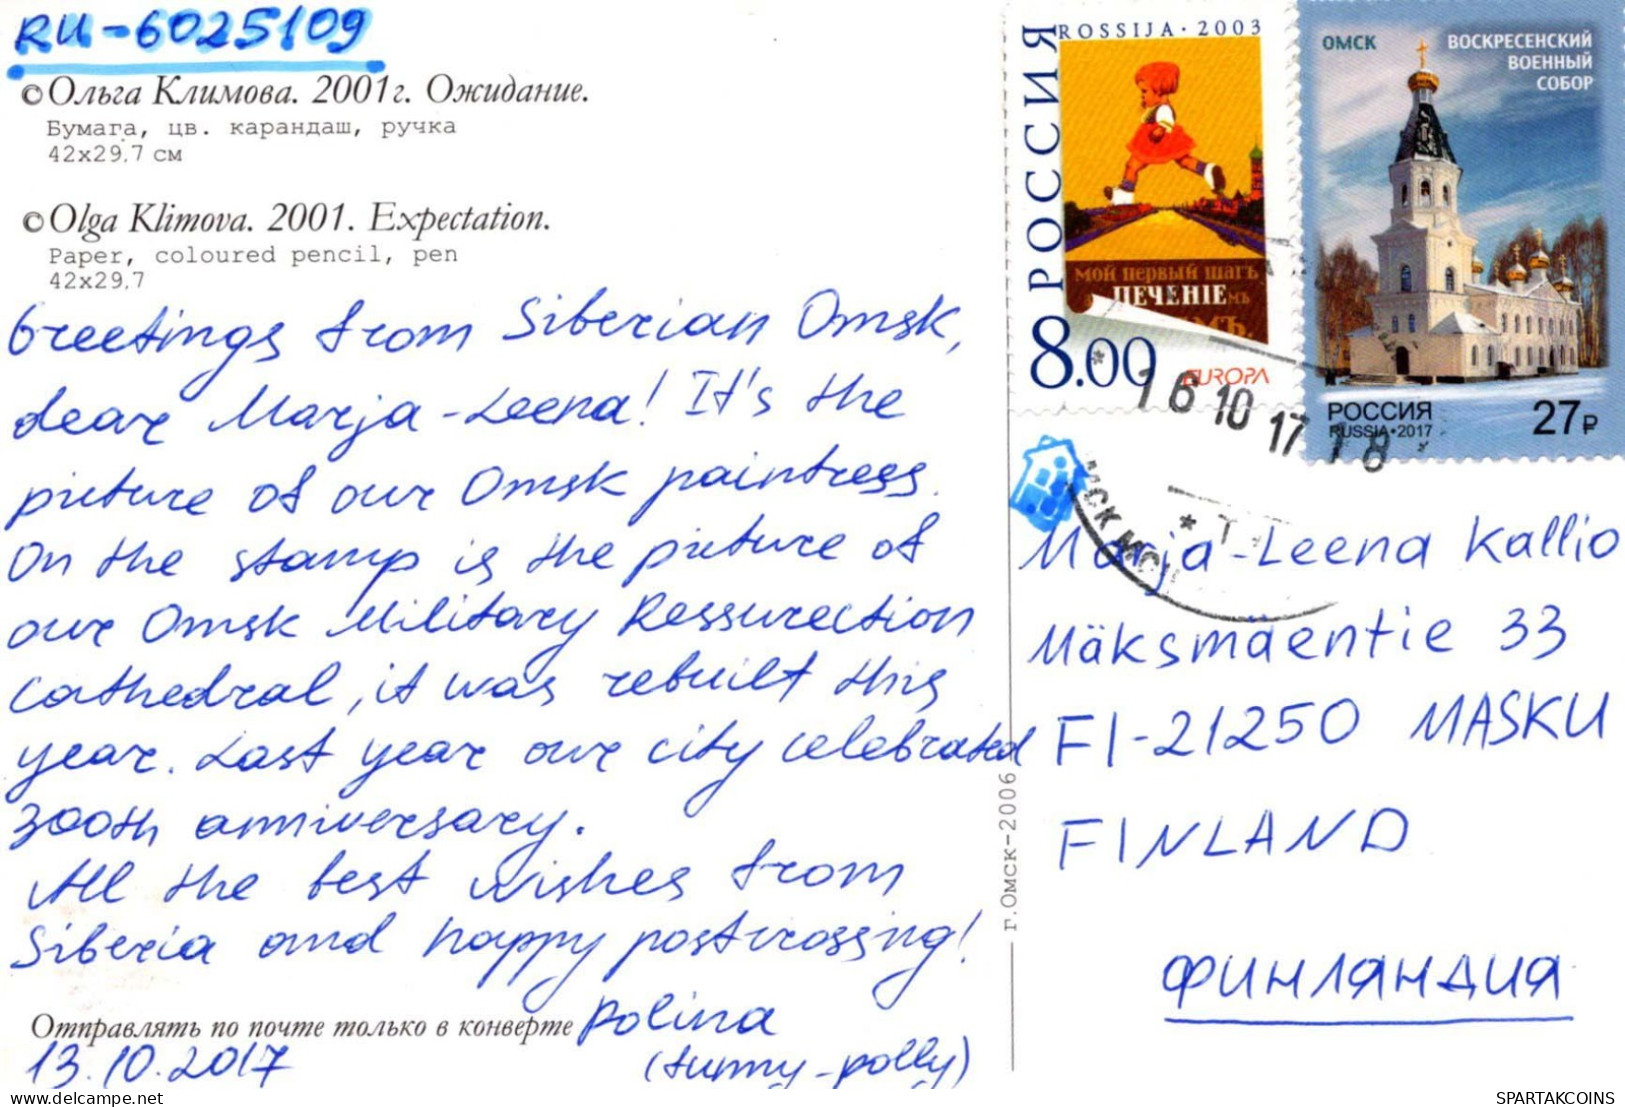 RU-6025109
© Ольга Климова. 2001г. Ожидание.
Бумага, цв. карандаш, ручка
42x29,7 см
© Olga Klimova. 2001. Expectation.
Paper, coloured pencil, pen
42x29,7
Greetings from Siberian Omsk,
dear Marja-Leena! It's the
picture of our Omsk paintress.
On the stamp is the picture of
our Omsk Military Ressurection
Cathedral, it was rebuilt this
year. Last year our city celebrated
300th anniversary.
All the best wishes from
Siberia and happy postcrossing!
Отправлять по почте только в конверте
Polina
13.10.2017
(funny-polly)
г.Омск-2006
ROSSIJA·2003
РОССИЯ
мой первый шагъ
ПЕЧЕНІЕ
8.00
EUROPA
ОМСК
ВОСКРЕСЕНСКИЙ
ВОЕННЫЙ
СОБОР
РОССИЯ
RUSSIA·2017
27₽
16 10 17 18
Marja-Leena Kallio
Mäksmäentie 33
FI-21250 MASKU
FINLAND
ФИНЛЯНДИЯ
eu.delcampe.net
SPARTAKCOINS